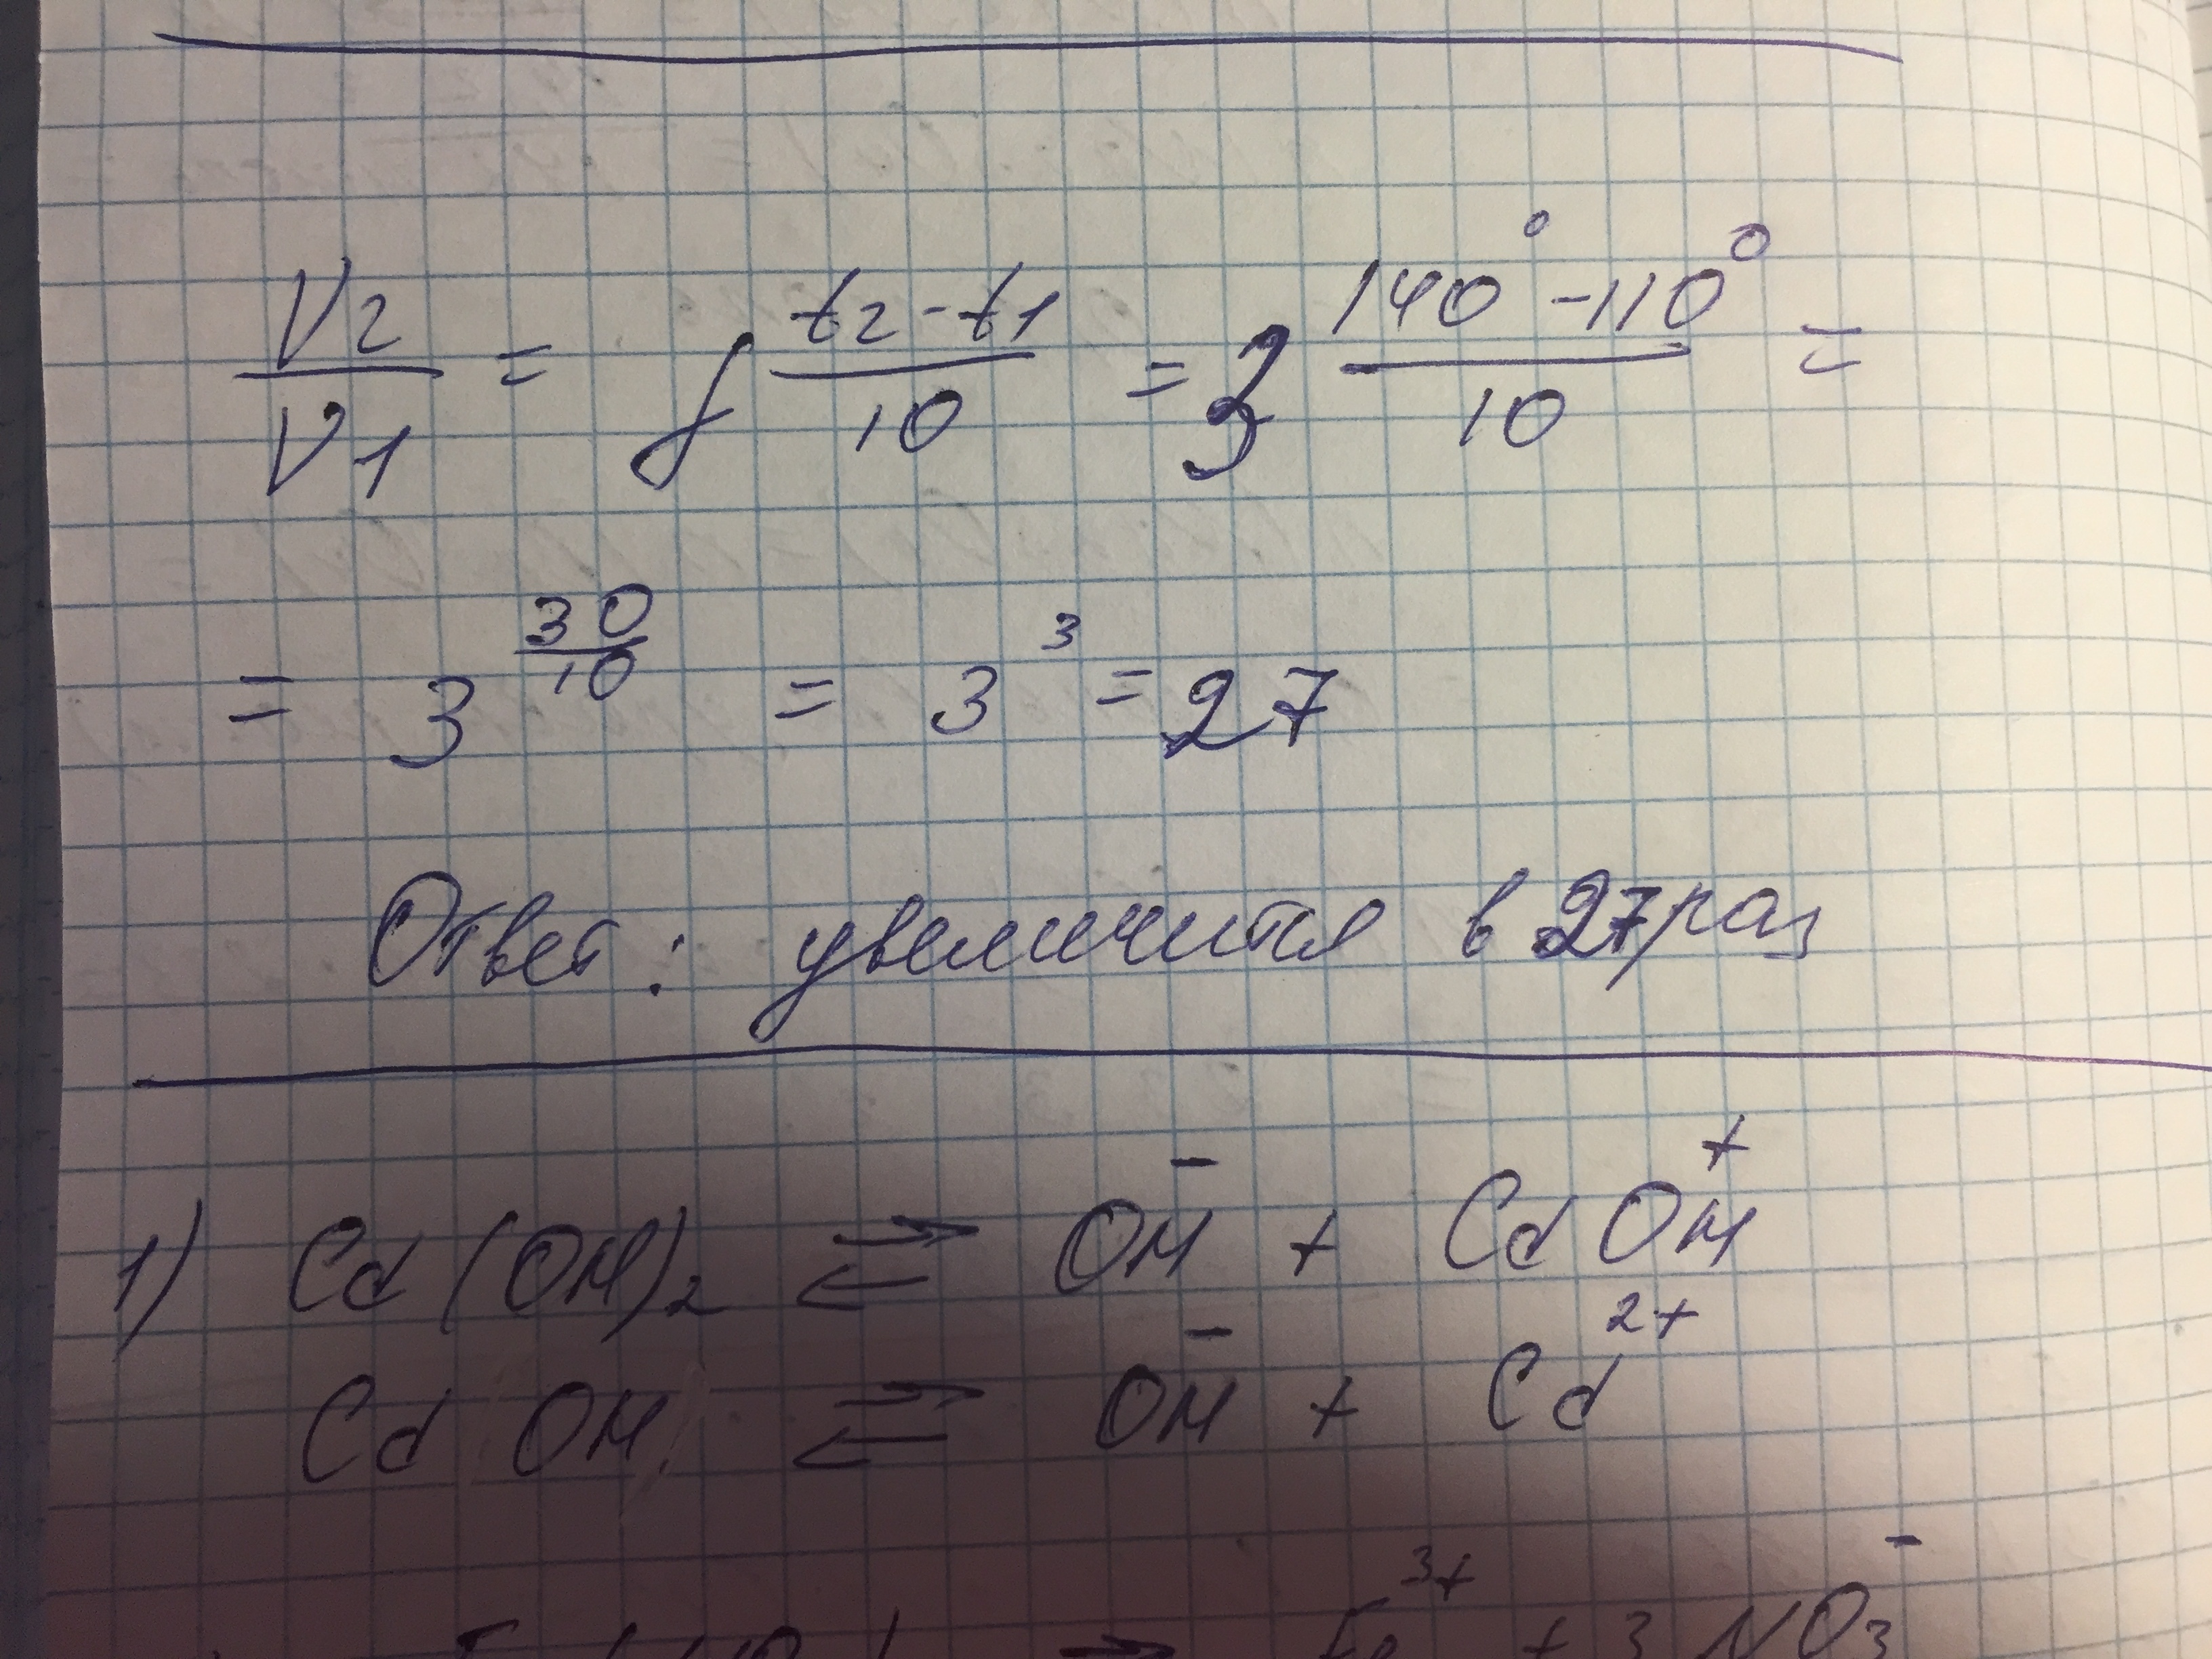 V2/V1 = γ^((t2-t1)/10) = 3^((140°-110°)/10) =
= 3^(30/10) = 3^3 = 27
Ответ: увеличится в 27 раз
1) Cd(OH)2 ⇄ OH^- + CdOH^+
Cd OH ⇄ OH^- + Cd^2+
→ Fe^3+ + 3 NO3^-